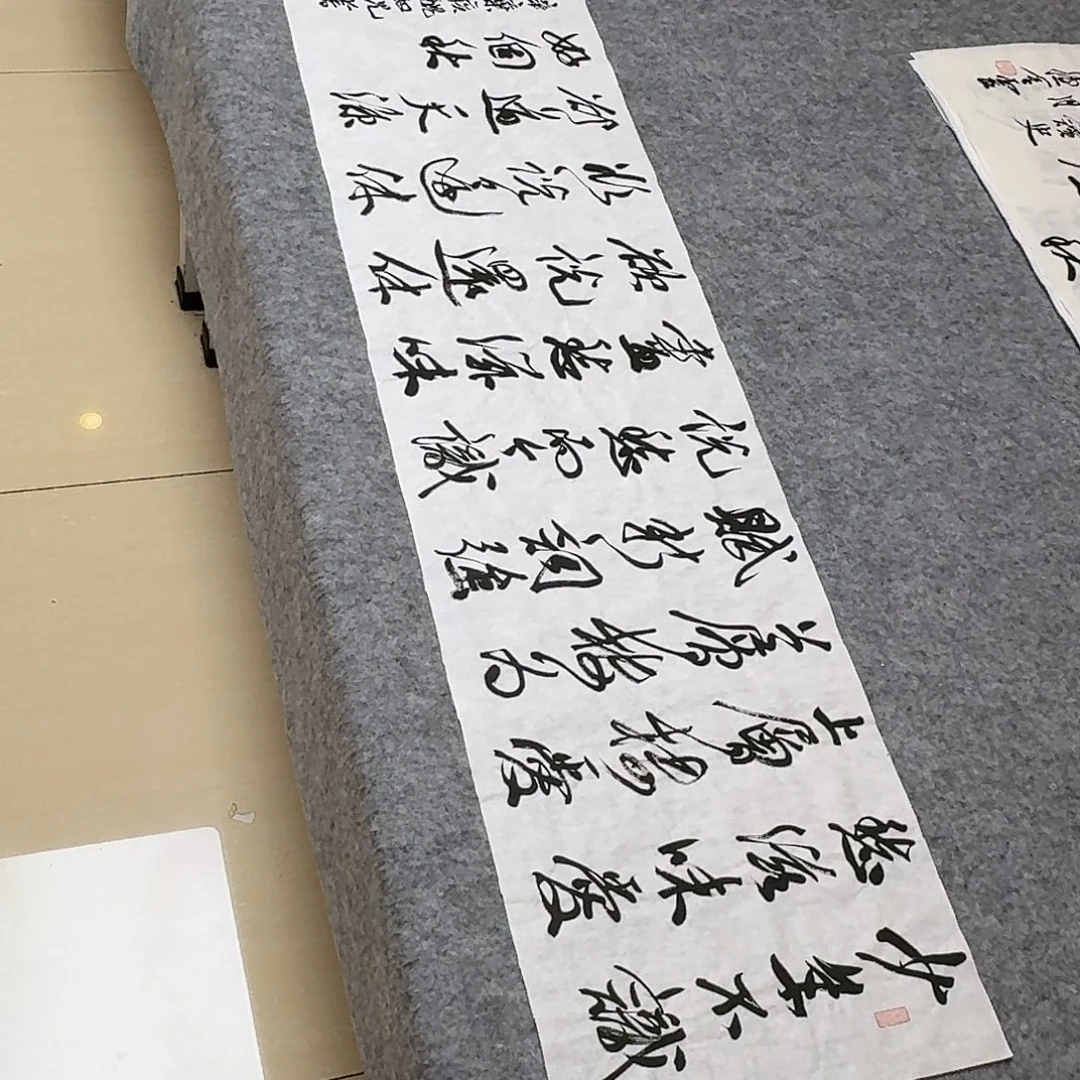 少年不識
愁滋味愛
上層樓愛
上層樓为
賦新詞强
说愁而今識
盡愁滋味
欲说還休
欲说还休
却道天凉
好個秋